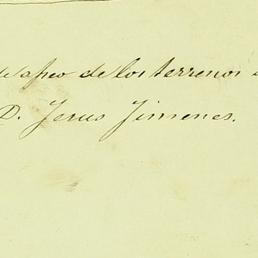 de apeo de los terrenos
D. Jesus Jimenes.